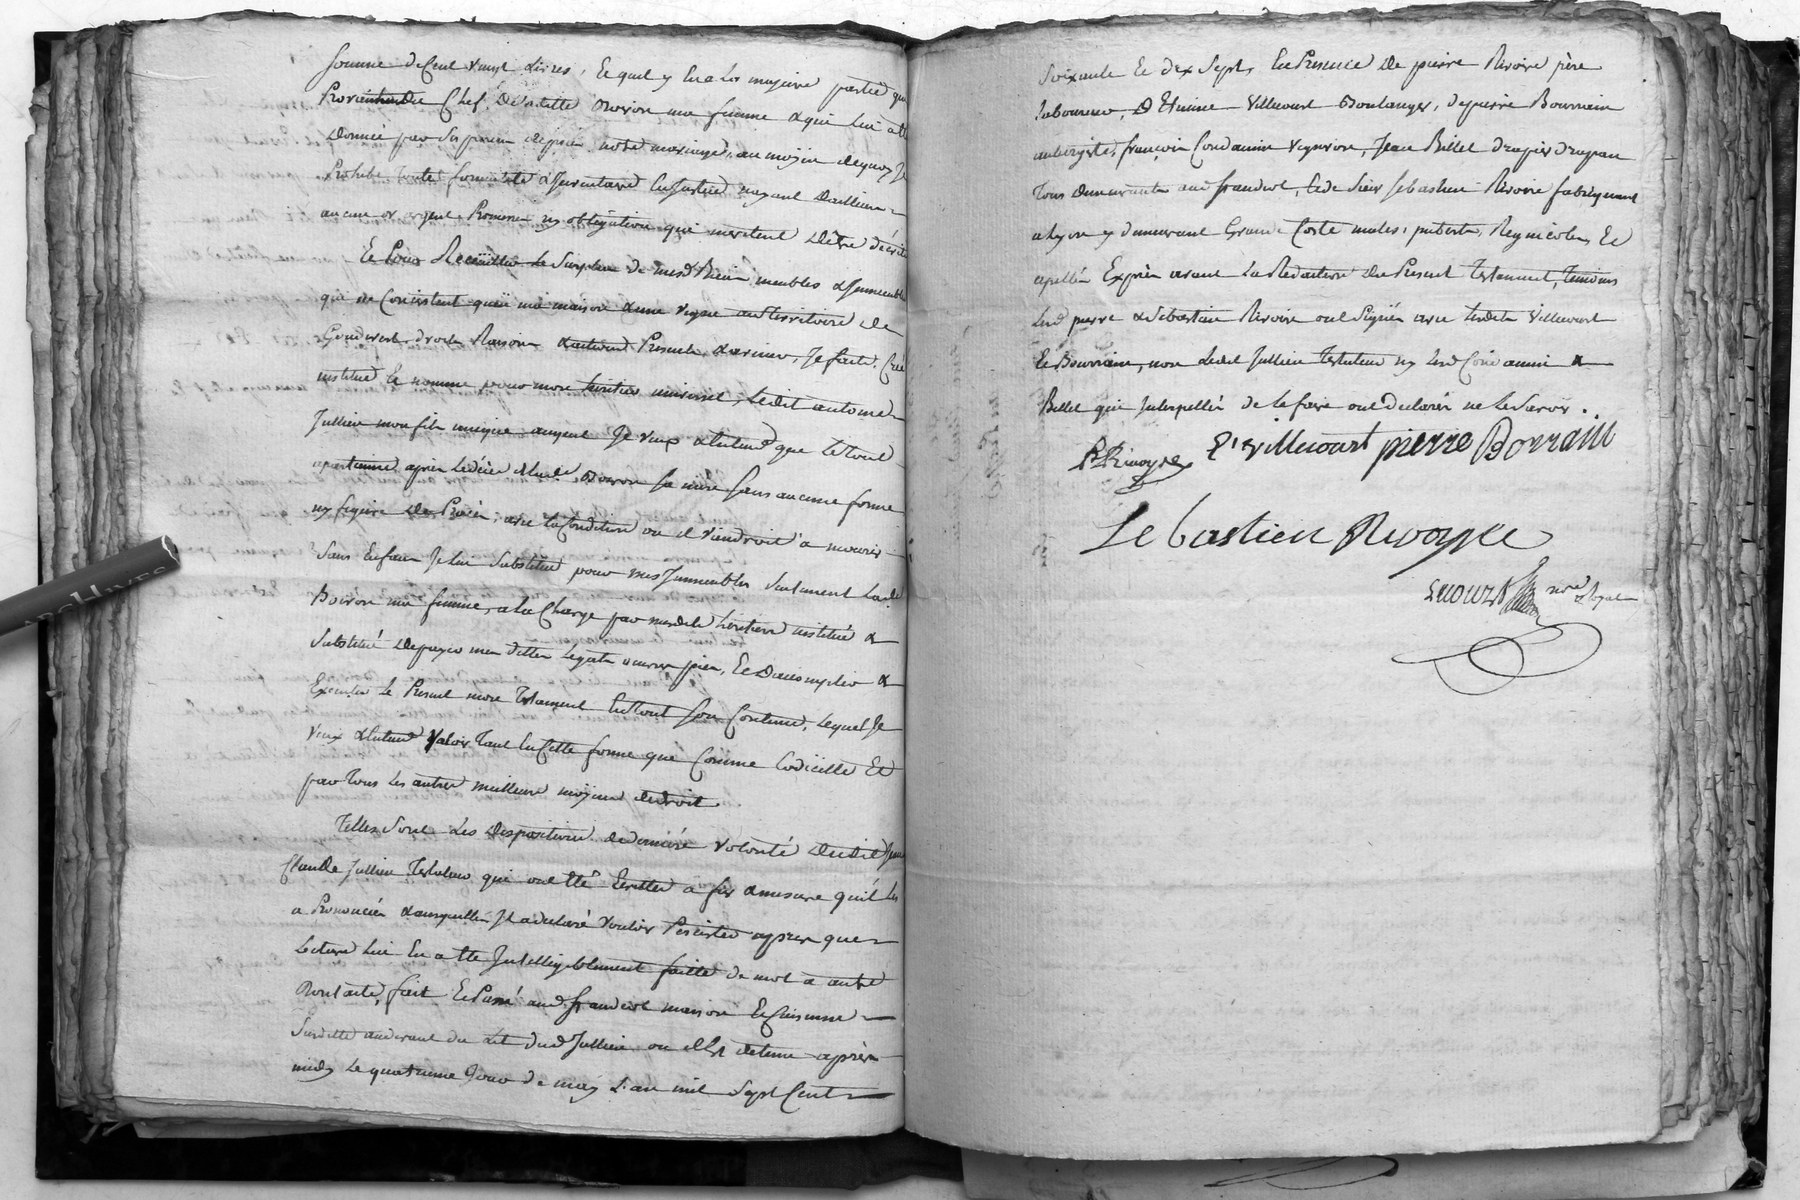 somme de Cent vingt Livres, Et quil y En a la majeure partie qui
Provient du Chef de ditte Boiron ma femme & qui Lui a été
donnée par son pere depuis notre mariage, au moÿen dequoy Je
Prohibe toute formalité d'Inventaire En Justice nayant dailleurs
aucun or argent Promesse ny obligation qui meritent d'être décrits
Et Pour Recüeillir Le Surplus de mes Biens meubles & Immeubles
qui ne Consistent quen une maison & une vigne au Territoire de
droits Raisons & actions Presents & avenir, Je fait, Créé
institue Et nomme pour mon heritier universel, Ledit antoine
Jullien mon fils unique auquel Je veux & Entend que Le tout
apartienne après Le décès de Boiron Sa mere Sans aucune forme
ny figure de Procès, avec la Condition ou il viendroit à mourir
Sans Enfans Je Lui Substitue pour mes Immeubles Seulement Lade
Boiron ma femme, a la Charge par mesdits heritiers institué &
Substitué de payer mes dittes Legats œuvres pies, Et d'accomplir &
Executer Le Present mon Testament En tout Son Contenu, Lequel Je
veux & Entend Valoir Tant En Cette forme que Comme Codicille Et
par Tous Les autres meilleurs moÿens de droit.
Telles Sont Les dispositions de derniére volonté dudit Jean
Claude Jullien Testateur qui ont été Ecrittes a fur & mesure quil Les
a Prononcées & auxquelles Il a declaré vouloir Persister après que
Lecture Lui En a été Intelligiblement faitte de mot à autre
Dont acte, fait Et Passé aud. maison Et
Susditte audevant du Lit dud Jullien ou il Est detenu après
midy Le quatrieme Jour de may L'an mil Sept Cent
Soixante Et dix Sept, En Presence de pierre Rivoire pere
laboureur, D'Etienne Villecourt Boulanger, de pierre Bourrain
aubergiste, françois Condamin vigneron, Jean Billet drapier drapan
Tous demeurants aud. Et de Sieur Sebastien Rivoire fabriquant
a Lyon y demeurant Grande Coste males, puberes, Regnicoles, Et
apellés Exprès avant La Redaction du Present Testament, Temoins
Lesd pierre & Sébastien Rivoire ont Signés avec Lesdits Villecourt
Et Bourrain, non Ledit Jullien Testateur ny Lesd Condamin &
Billet qui Interpellés de Le faire ont Declarés ne Le Savoir.
P. Rivoyre E. Villecourt pierre Borrain
Sebastien Rivoyre
nore Royal